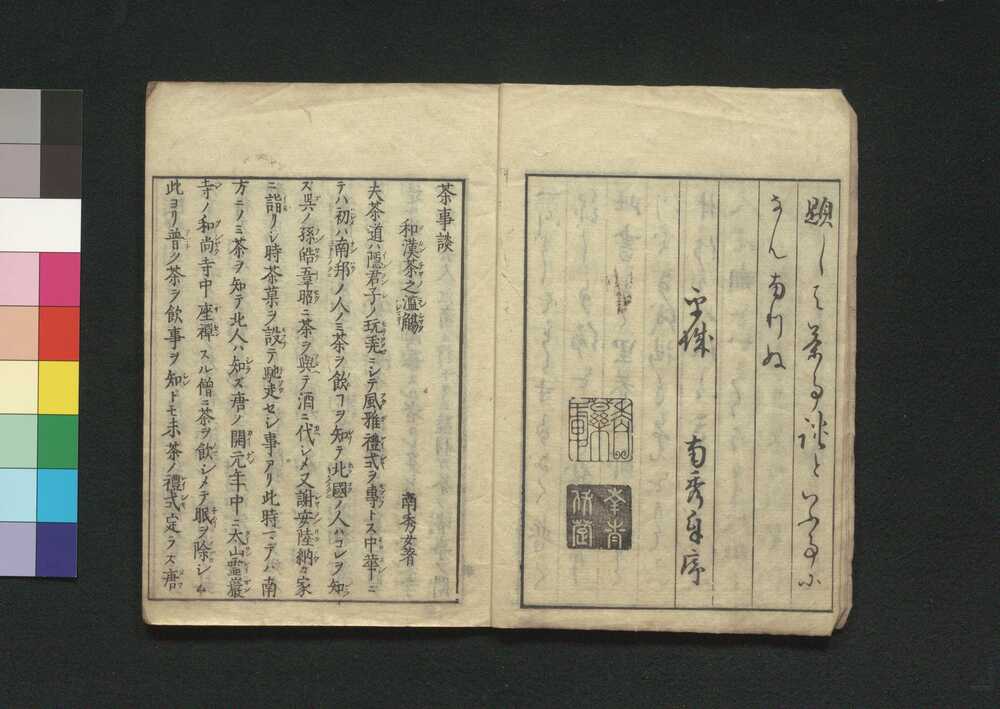 題して茶事談といふ事に
なんなりぬ
平城
南秀自序
茶事談
和漢茶之濫觴
南秀女著
夫茶道ハ隠君子ノ玩兎ニシテ風雅禮式ヲ專トス中華ニ
テハ初ハ南邦ノ人ノミ茶ヲ飲ヿヲ知テ北國ノ人ハコレヲ知
ズ呉ノ孫皓韋昭ニ茶ヲ與テ酒ニ代シメ又謝安陸納ガ家
ニ詣リシ時茶菓ヲ設テ馳走セシ事アリ此時マデハ南
方ニノミ茶ヲ知テ北人ハ知ズ唐ノ開元年中ニ太山霊巖
寺ノ和尚寺中座禪スル僧ニ茶ヲ飲シメテ眠ヲ除シム
此ヨリ普ク茶ヲ飲事ヲ知トモ未茶ノ禮式定ラズ唐